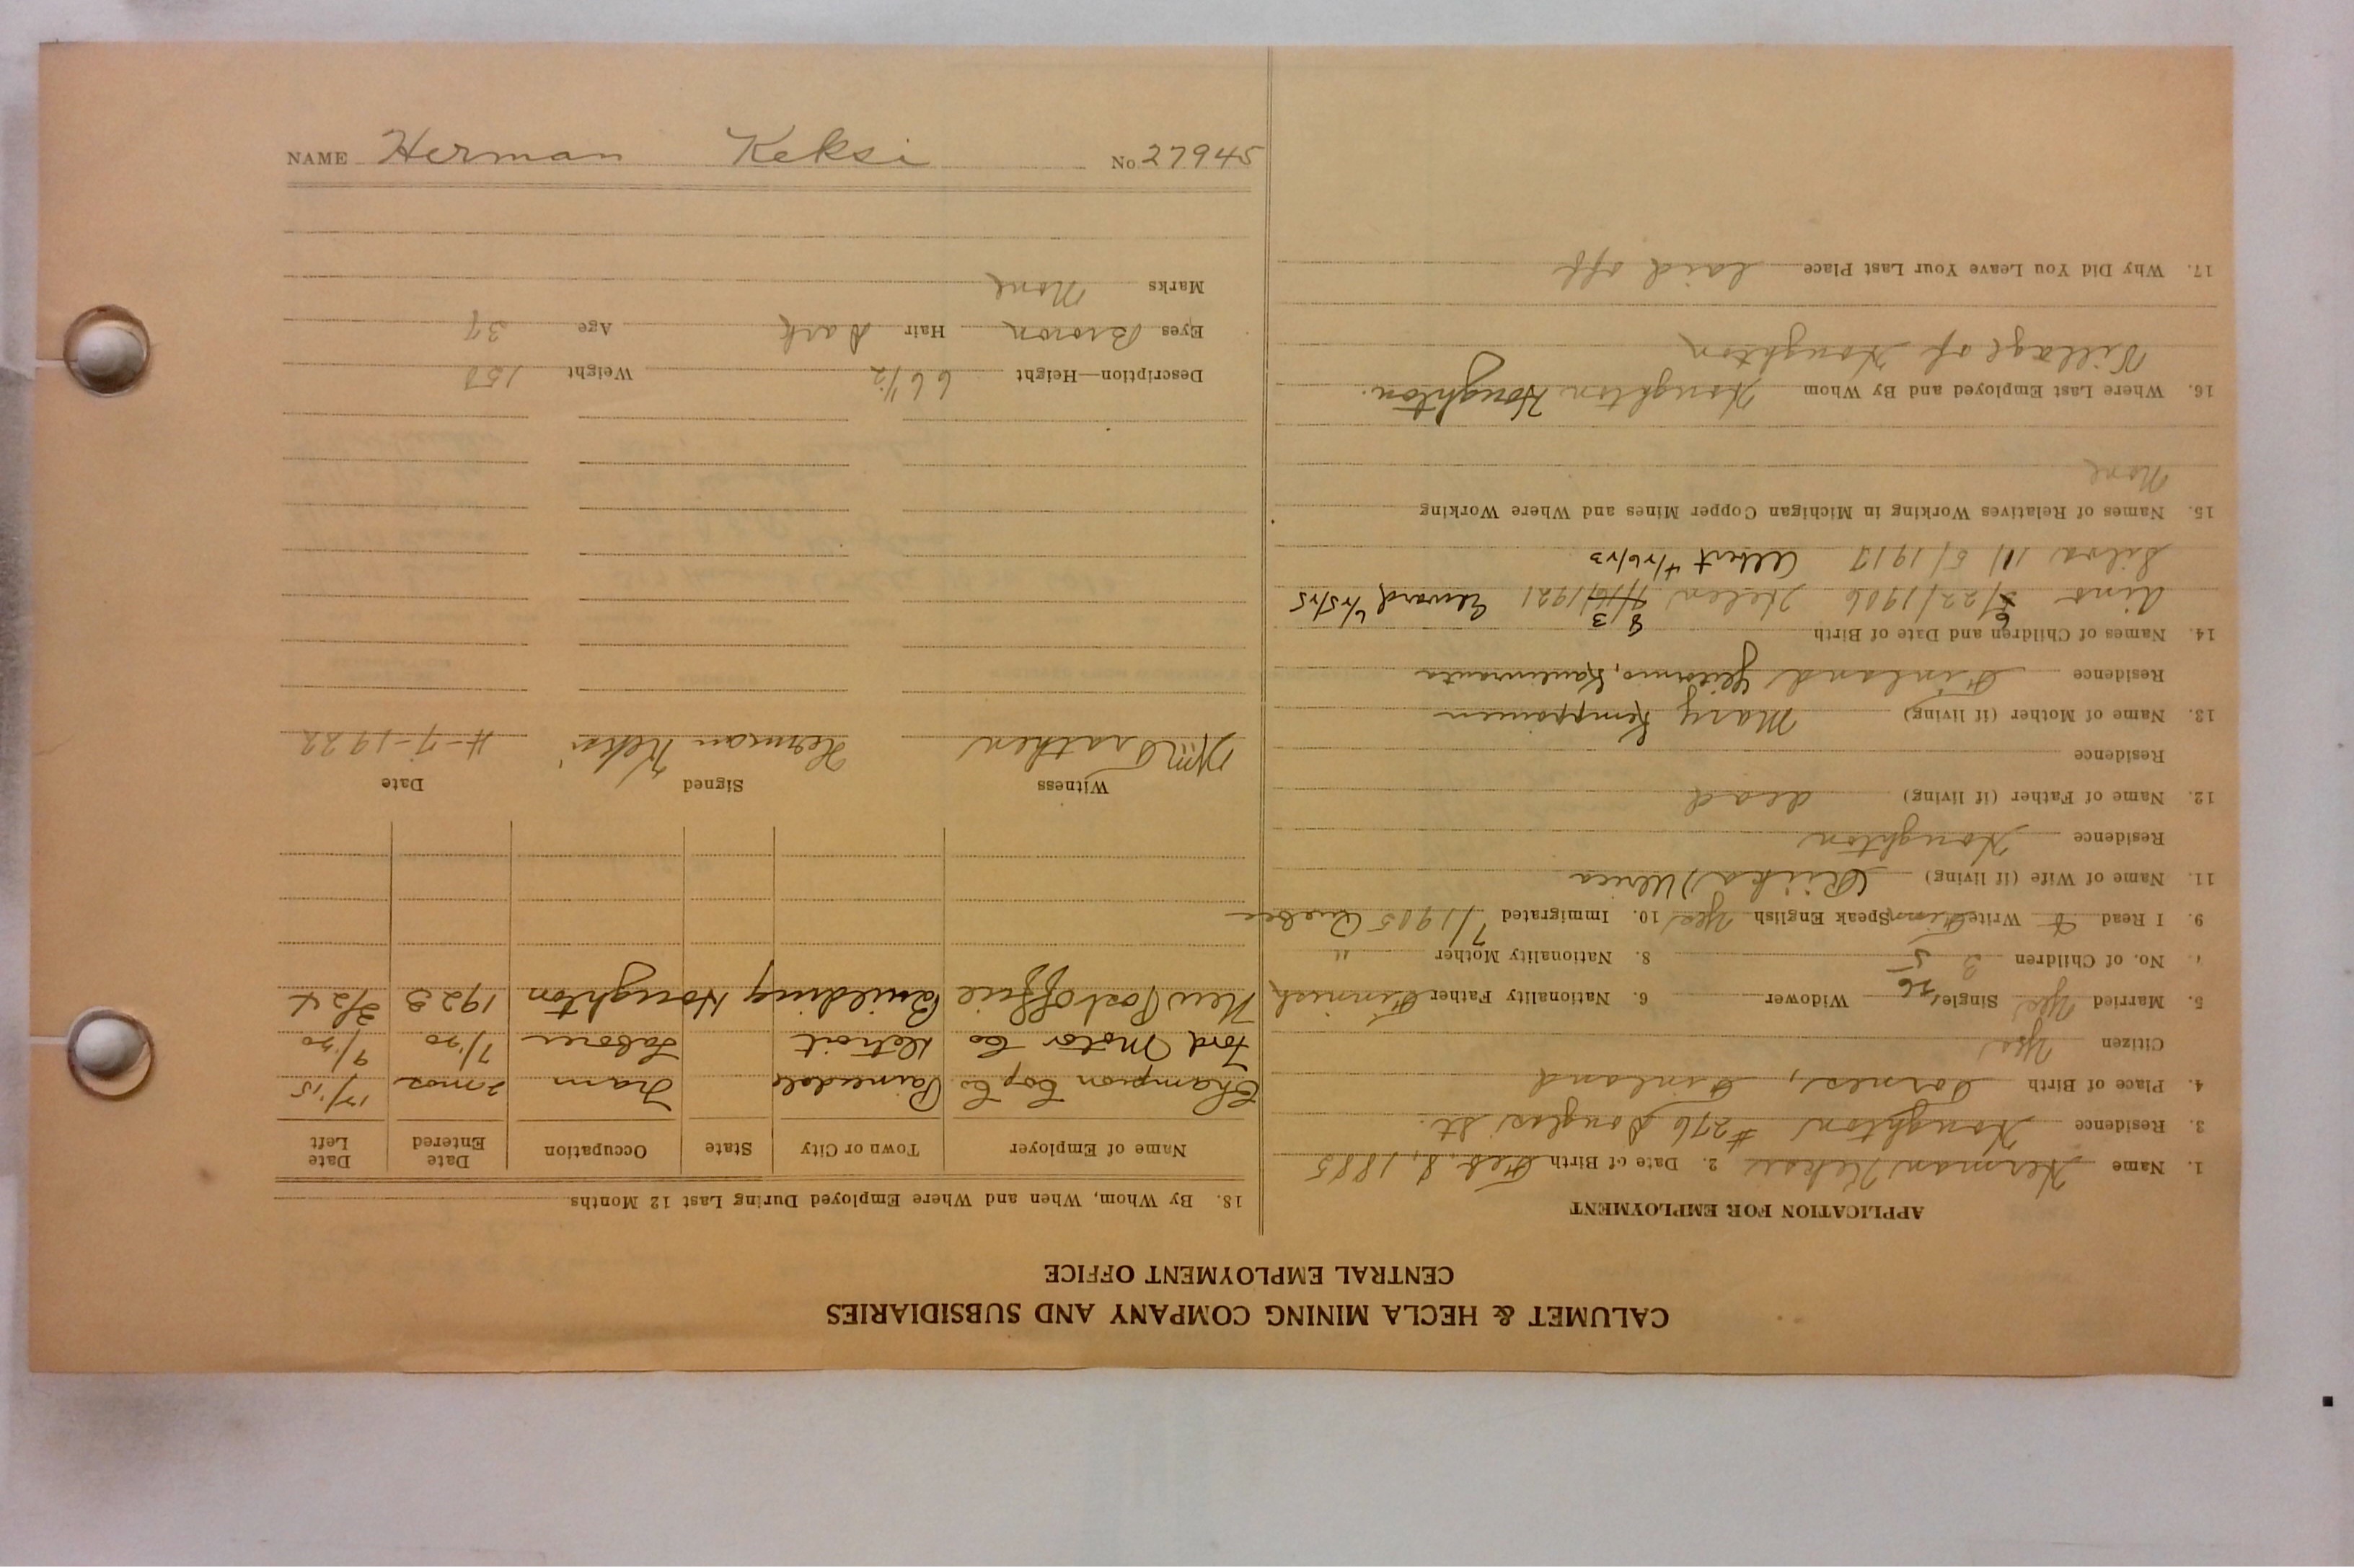 CALUMET & HECLA MINING COMPANY AND SUBSIDIARIES
CENTRAL EMPLOYMENT OFFICE
APPLICATION FOR EMPLOYMENT
1. Name Herman Keksi 2. Date of Birth Feb. 8, 1885
3. Residence Houghton #276 Douglas St.
4. Place of Birth Tornes, Finland
Citizen Yes
5. Married Yes Single Widower 6. Nationality Father Finnish
7. No. of Children 3 5 8. Nationality Mother "
9. I Read & Write Finn Speak English Yes 10. Immigrated 7/1905 Quebec
11. Name of Wife (if living) Riika Ulrica
Residence Houghton
12. Name of Father (if living) dead
Residence
13. Name of Mother (if living) Mary Kemppainen
Residence Finland
14. Names of Children and Date of Birth
Aino 6/22/1906 Helen 8/3 1921 Edward 6/25/25
Silva 11/5/1917 Albert 4/26/23
15. Names of Relatives Working in Michigan Copper Mines and Where Working
None
16. Where Last Employed and By Whom Houghton Houghton.
Village of Houghton
17. Why Did You Leave Your Last Place laid off
18. By Whom, When and Where Employed During Last 12 Months
Name of Employer Town or City State Occupation Date Entered Date Left
Champion Cop Co Painesdale Tram 2 mos 12/'15
Ford Motor Co Detroit Laborer 7/'20 9/'20
New Post Office Building Houghton 1923 2/24
Witness Signed Date
Herman Keksi 4-7-1922
Description—Height 66 1/2 Weight 158
Eyes Brown Hair Dark Age 37
Marks None
NAME Herman Keksi No. 27945